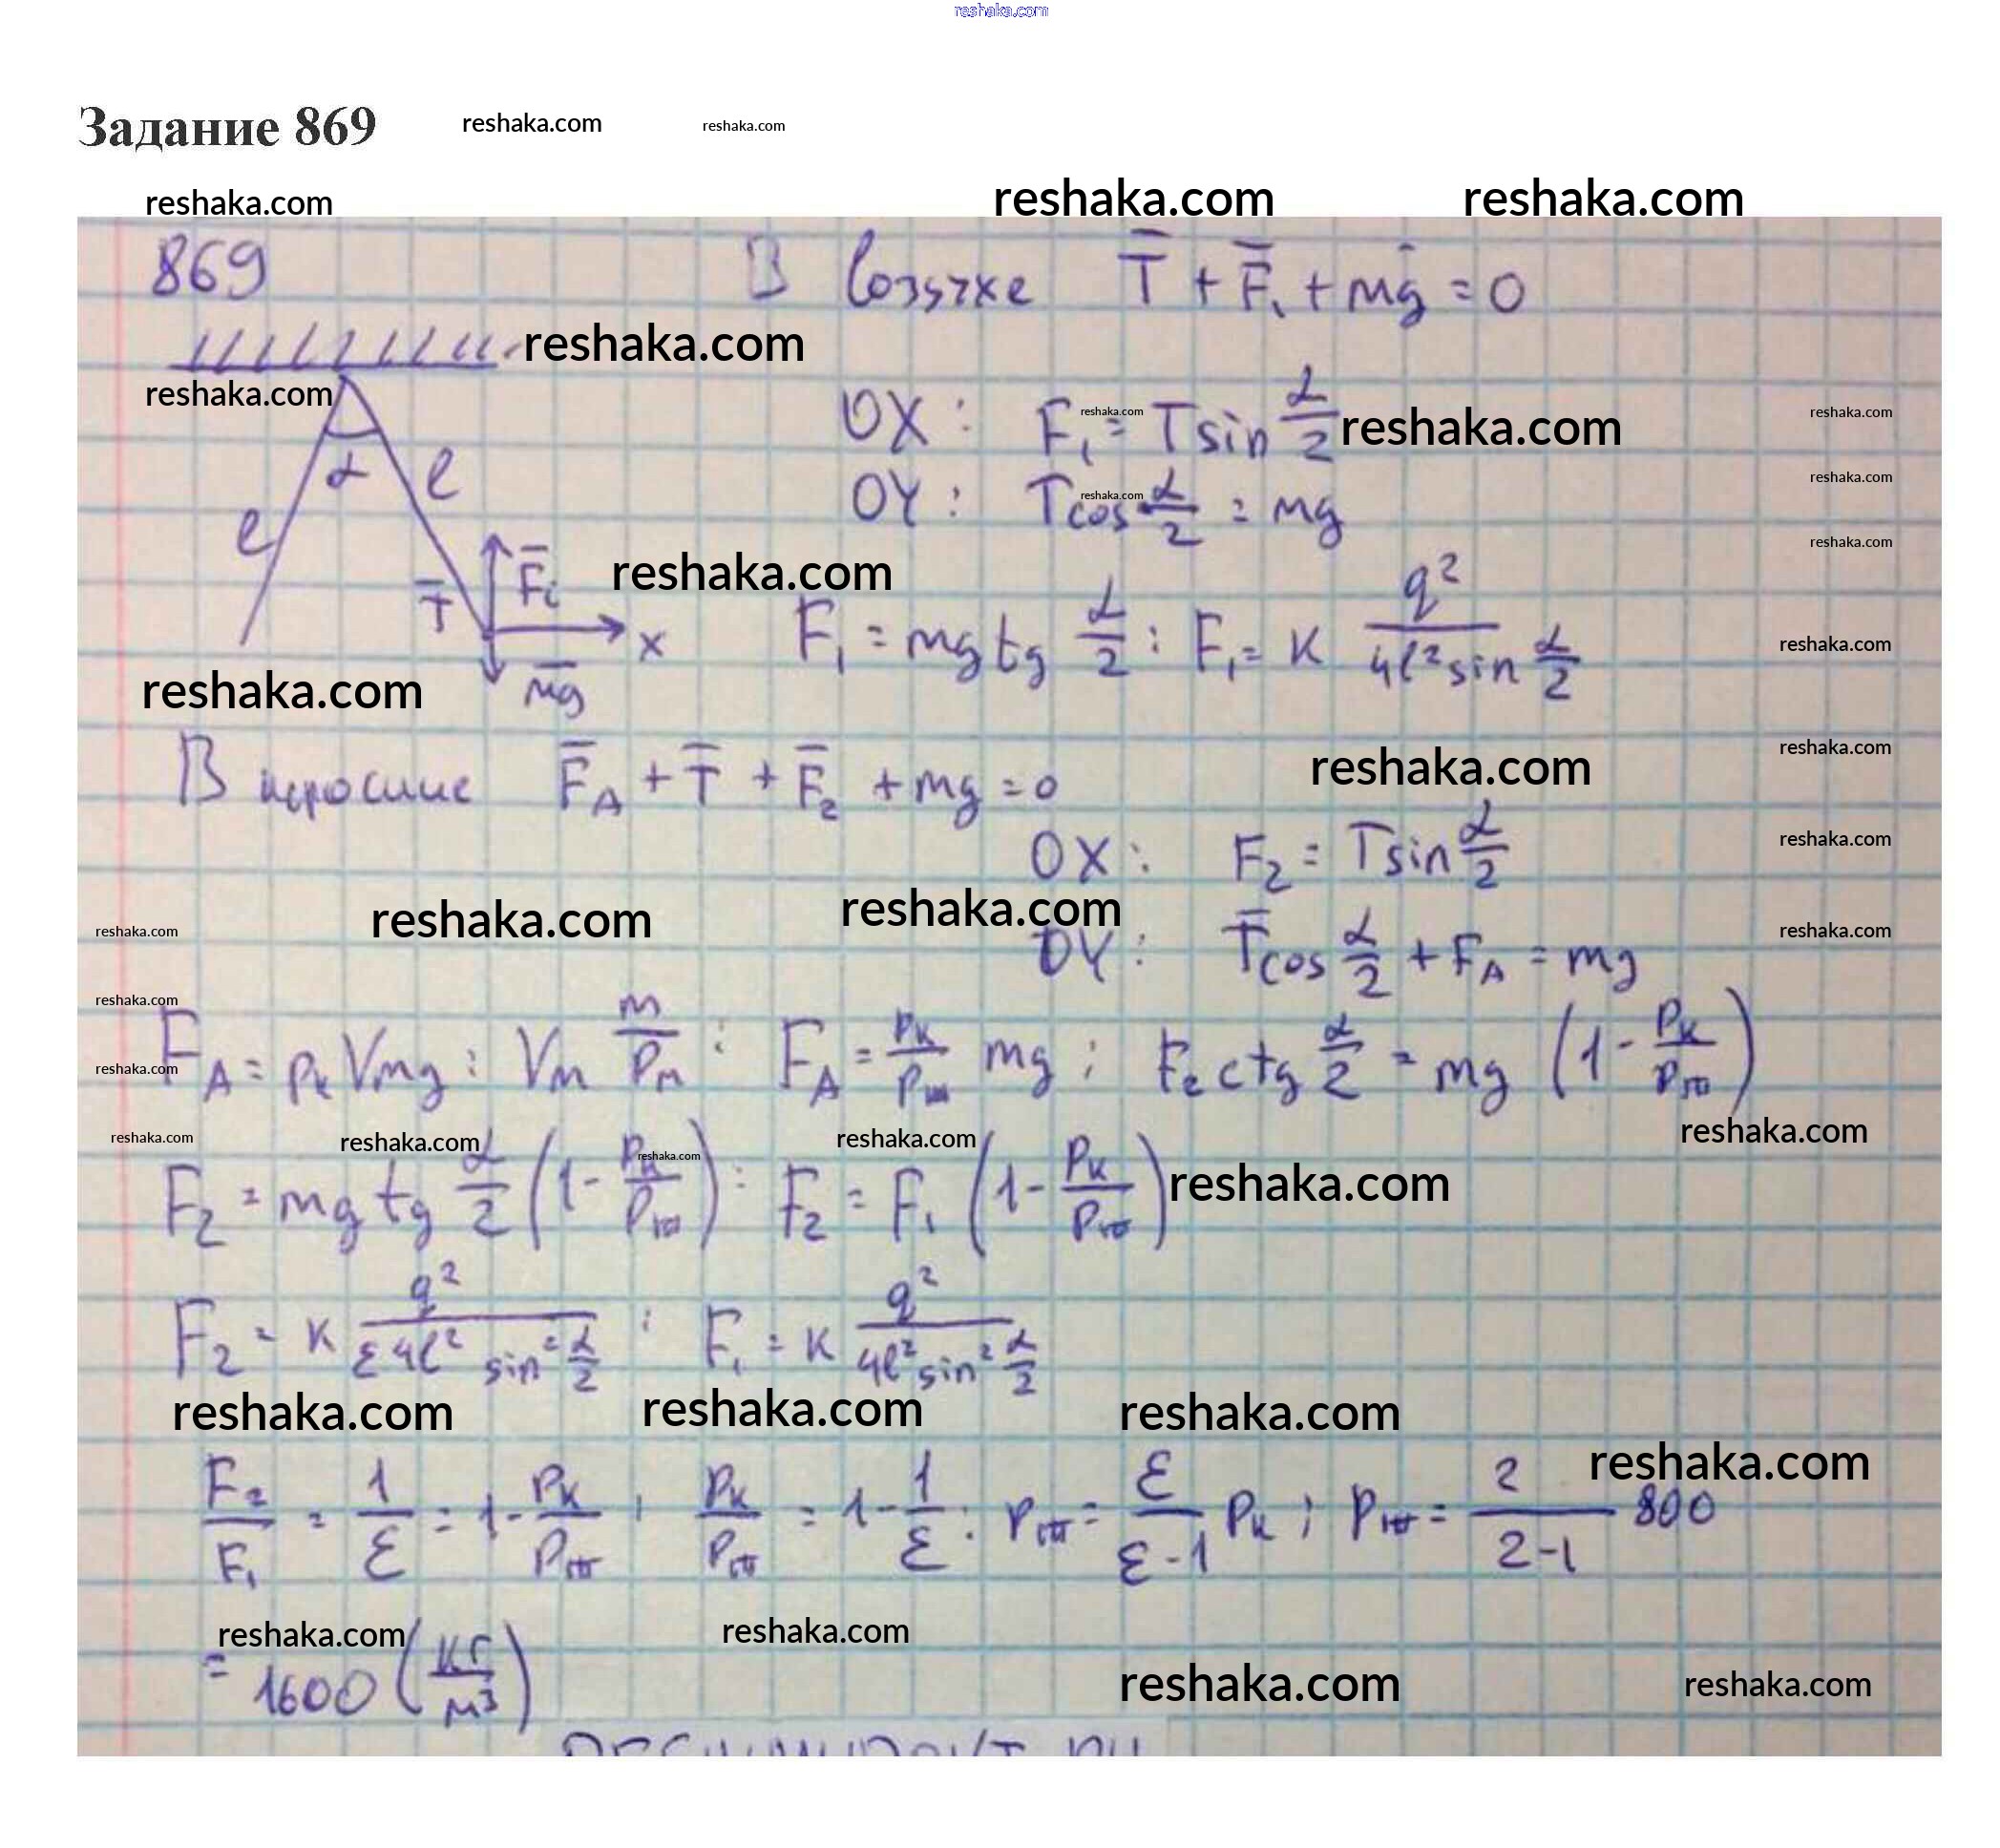 reshaka.com
Задание 869 reshaka.com reshaka.com
reshaka.com reshaka.com reshaka.com
869 В воздухе T̅ + F̅₁ + mg̅ = 0
reshaka.com
reshaka.com
α l
l
OX: F₁ = T sin α/2 reshaka.com reshaka.com reshaka.com
OY: T cos α/2 = mg reshaka.com reshaka.com
reshaka.com
T̅ F̅ x m̅g̅ reshaka.com
F₁ = mg tg α/2 : F₁ = K q²/(4l² sin α/2) reshaka.com
reshaka.com
В керосине F̅_A + T̅ + F̅₂ + mg = 0 reshaka.com reshaka.com
OX: F₂ = T sin α/2 reshaka.com
reshaka.com reshaka.com reshaka.com
OY: T̅ cos α/2 + F_A = mg reshaka.com
reshaka.com
F_A = ρ_k V_m g : V_m m/ρ_m : F_A = ρ_k/ρ_ш mg ; F₂ ctg α/2 = mg (1 - ρ_k/ρ_ш)
reshaka.com
reshaka.com reshaka.com reshaka.com reshaka.com reshaka.com
F₂ = mg tg α/2 (1 - ρ_k/ρ_ш) : F₂ = F₁ (1 - ρ_k/ρ_ш) reshaka.com
F₂ = K q²/(ε4l² sin² α/2) ; F₁ = K q²/(4l² sin² α/2)
reshaka.com reshaka.com reshaka.com reshaka.com
F₂/F₁ = 1/ε = 1 - ρ_k/ρ_ш ; ρ_k/ρ_ш = 1 - 1/ε : ρ_ш = ε/(ε-1) ρ_k ; ρ_ш = 2/(2-1) 800
reshaka.com reshaka.com
= 1600 (кг/м³)
reshaka.com reshaka.com